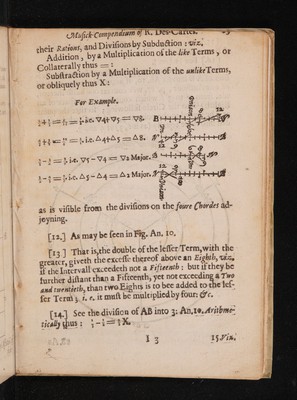 Musick-Compendium of R. Des-Cartes.
their Rations, and Divisions by Subduction: viz.
Addition, by a Multiplication of the like Terms, or
Collaterally thus =:
Substraction by a Multiplication of the unlike Terms,
or obliquely thus X:
For Example.
i.e. ∇4+∇5 = ∇8.
i.e. △4+△5 = △8.
i.e. ∇5 - ∇4 = ∇2 Major.
i.e. △5 - △4 = △2 Major.
as is visible from the divisions on the foure Chordes ad-
joyning.
[12.] As may be seen in Fig. An. 10.
[13.] That is, the double of the lesser Term, with the
greater, giveth the excesse thereof above an Eighth, viz.
if the Intervall exceedeth not a Fifteenth: but if they be
further distant than a Fifteenth, yet not exceeding a Two
and twentieth, than two Eights is to bee added to the les-
ser Term; i. e. it must be multiplied by four: &c.
[14.] See the division of AB into 3: An. 10. Arithme-
tically thus:
I 3
15. Viz.